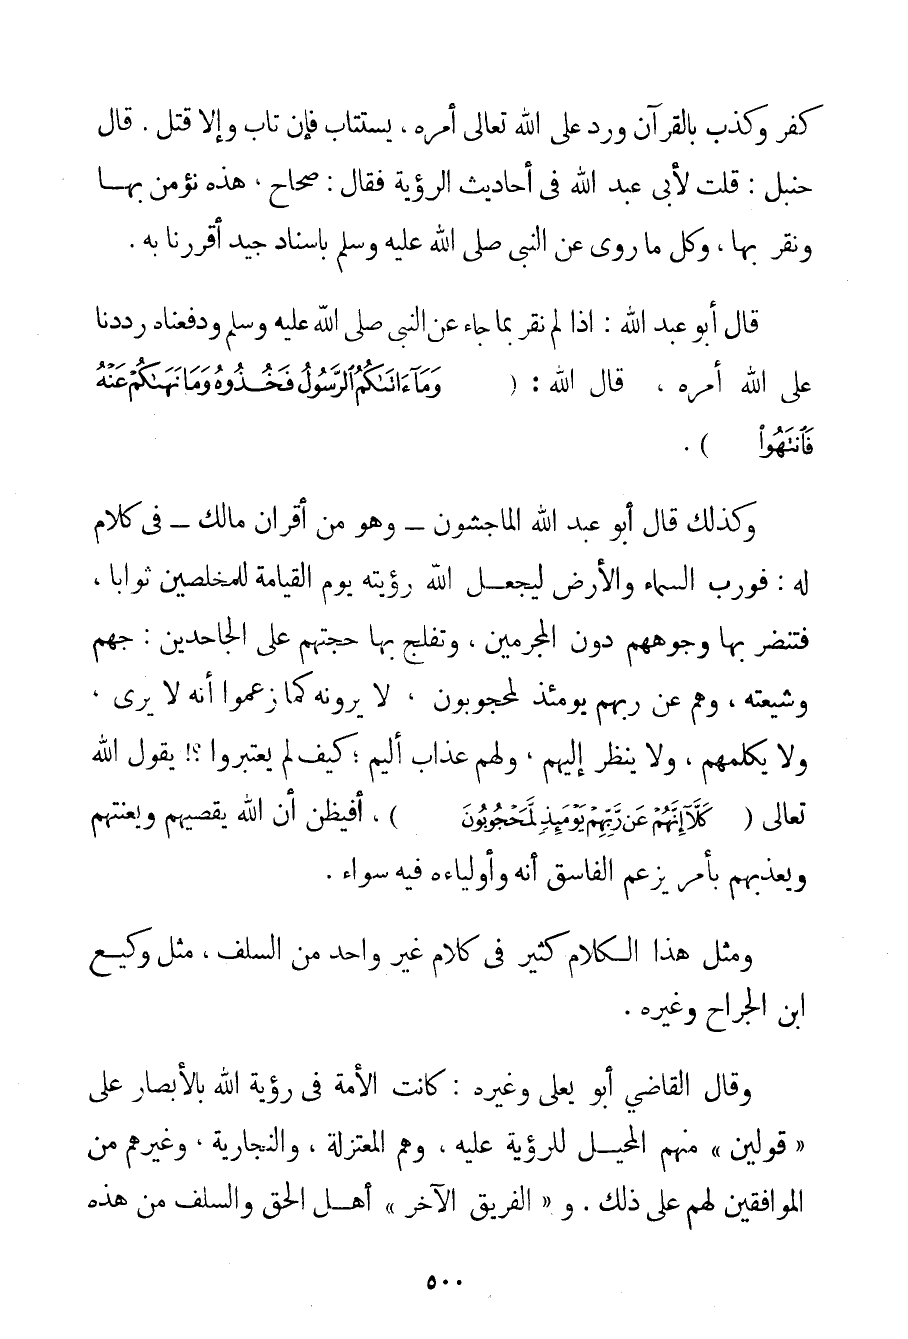 كفر وكذب بالقرآن ورد على الله تعالى أمره ، يستتاب فإن تاب وإلا قتل . قال
حنبل : قلت لأبى عبد الله فى أحاديث الرؤية فقال : صحاح ، هذه نؤمن بهـا
ونقر بها ، وكل ما روى عن النبى صلى الله عليه وسلم باسناد جيد أقررنا به .
قال أبو عبد الله : اذا لم نقر بما جاء عن النبى صلى الله عليه وسلم ودفعناه رددنا
على الله أمره ، قال الله : ( وَمَآءَاتَىٰكُمُ ٱلرَّسُولُ فَخُـذُوهُ وَمَا نَهَىٰكُمْ عَنْهُ
فَٱنتَهُوا۟ ) .
وكذلك قال أبو عبد الله الماجشون ــ وهو من أقران مالك ــ فى كلام
له : فورب السماء والأرض ليجعـل الله رؤيته يوم القيامة للمخلصين ثوابا ،
فتنضر بها وجوههم دون المجرمين ، وتفلج بها حجتهم على الجاحدين : جهم
وشيعته ، وهم عن ربهم يومئذ لمحجوبون ، لا يرونه كما زعموا أنه لا يرى ،
ولا يكلمهم ، ولا ينظر إليهم ، ولهم عذاب أليم ؛ كيف لم يعتبروا ؟! يقول الله
تعالى ( كَلَّآ إِنَّهُمْ عَن رَّبِّهِمْ يَوْمَئِذٍ لَّمَحْجُوبُونَ ) ، أفيظن أن الله يقصيهم ويعنتهم
ويعذبهم بأمر يزعم الفاسق أنه وأولياءه فيه سواء .
ومثل هذا الكلام كثير فى كلام غير واحد من السلف ، مثل وكيـع
ابن الجراح وغيره .
وقال القاضي أبو يعلى وغيره : كانت الأمة فى رؤية الله بالأبصار على
« قولين » منهم المحيـل للرؤية عليه ، وهم المعتزلة ، والنجارية ، وغيرهم من
الموافقين لهم على ذلك . و « الفريق الآخر » أهـل الحق والسلف من هذه
٥٠٠